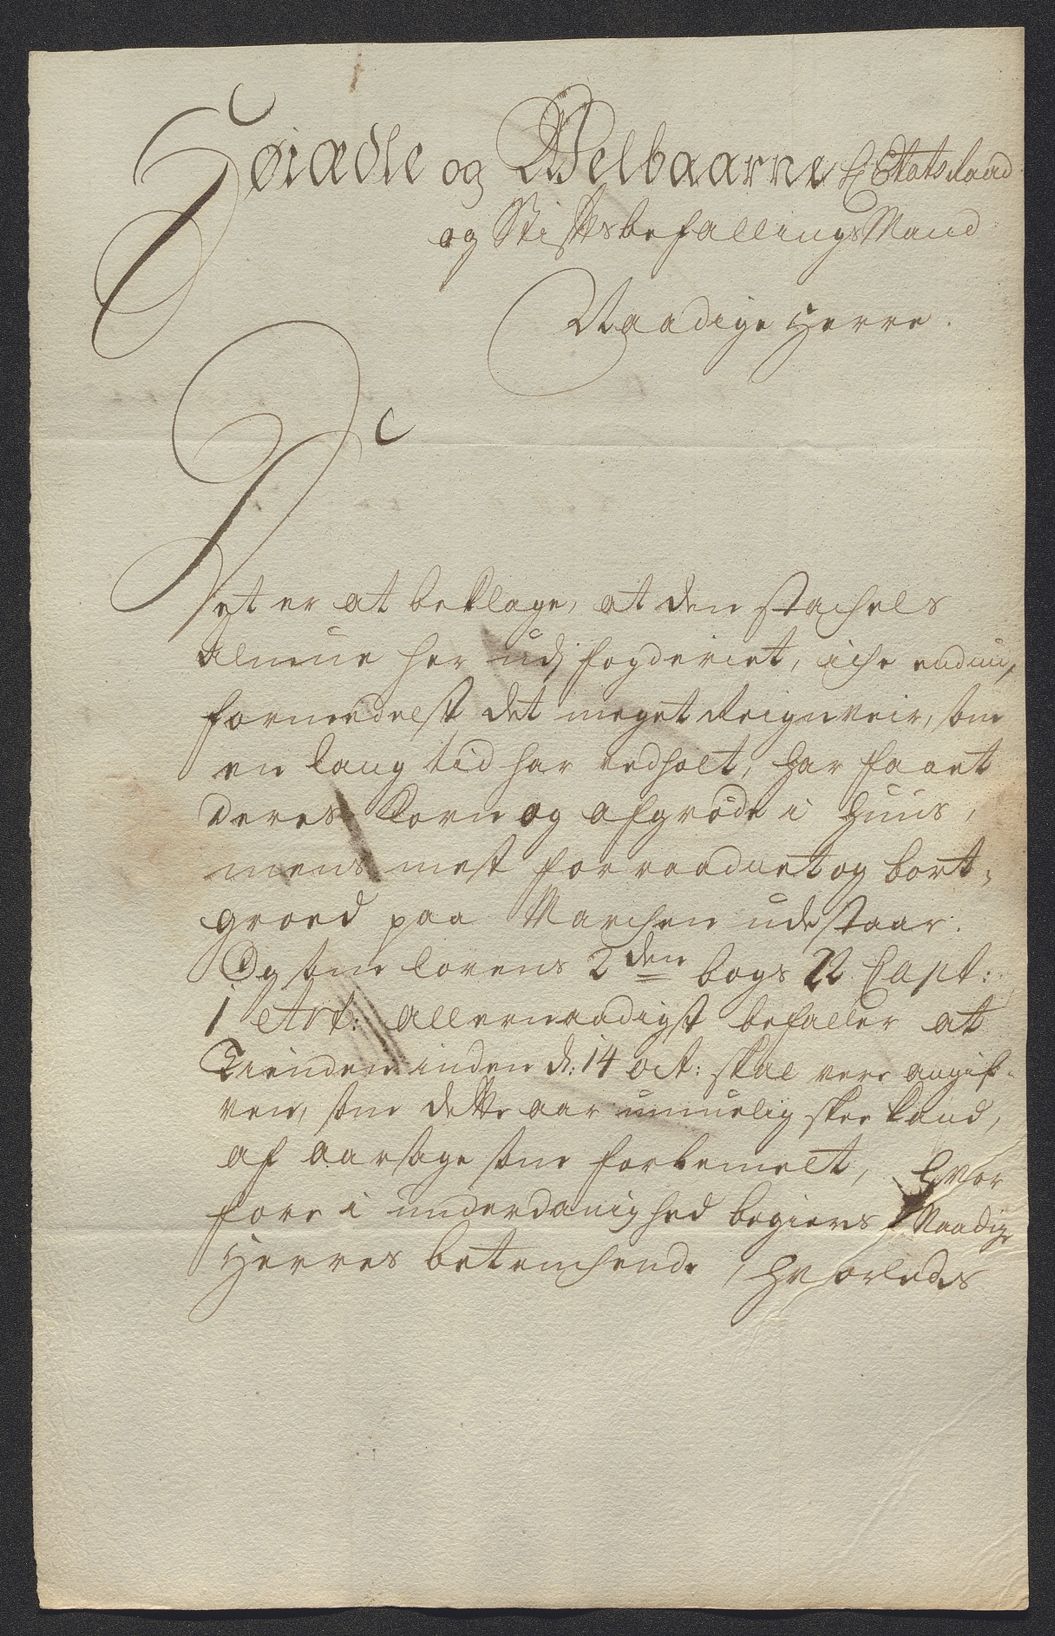 Høiædle og Welbaarne Hr Etatsraad
og StiftsbefallingsMand
Naadige Herre.
Det er at beklage, at den stachels
almue her udj fogderiet, iche endnu,
formedelst det meget Reignveir, som
en lang tid har vedholt, har faaet
deres korn og afgrøde i Huus,
mens mest forraadnet og bort-
groed paa Marchen udestaar.
Og som lovens 2den bogs 22 Capt:
1 Art: allernaadigst befaller at
Tienden inden d: 14 oct: skal vere angif-
ven, som dette aar umuelig skee kand,
af aarsage som forbemelt, Hvor
fore i underdanighed begieris Naadige
Herres betenchende, Hvorledes